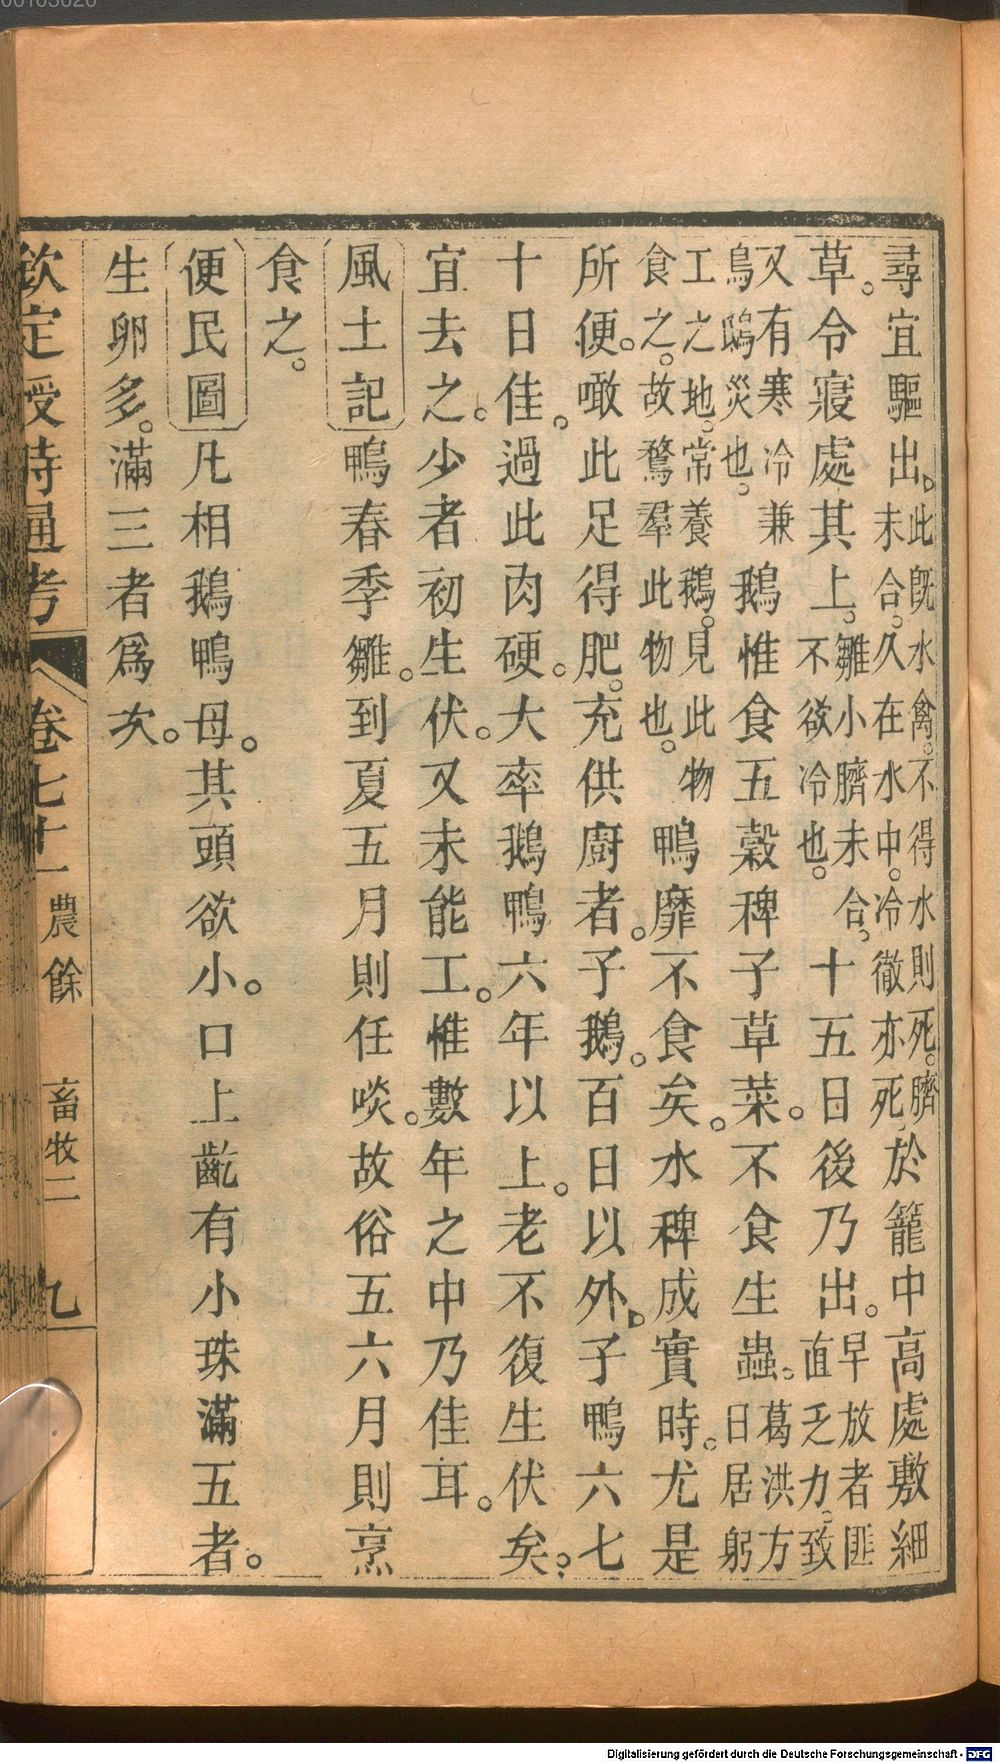 尋宜驅出。此旣水禽。不得水則死。臍未合。久在水中。冷徹亦死。於籠中高處敷細
草。令寢處其上。雛小臍未合。不欲冷也。十五日後乃出。早放者匪直乏力。致
又有寒冷兼烏鴟災也。鵝惟食五穀稗子草菜。不食生蟲。葛洪方日居躬
工之地。常養鵝。見此物食之。故鶩羣此物也。鴨靡不食矣。水稗成實時。尤是
所便。噉此足得肥。充供廚者。子鵝。百日以外。子鴨六七
十日佳。過此肉硬。大率鵝鴨六年以上。老不復生伏矣。
宜去之。少者初生伏。又未能工。惟數年之中乃佳耳。
風土記鴨春季雛。到夏五月則任啖。故俗五六月則烹
食之。
便民圖凡相鵝鴨母。其頭欲小。口上齕有小珠滿五者。
生卵多。滿三者爲次。
欽定授時通考 卷七十一 農餘 畜牧二 九
Digitalisierung gefördert durch die Deutsche Forschungsgemeinschaft - DFG